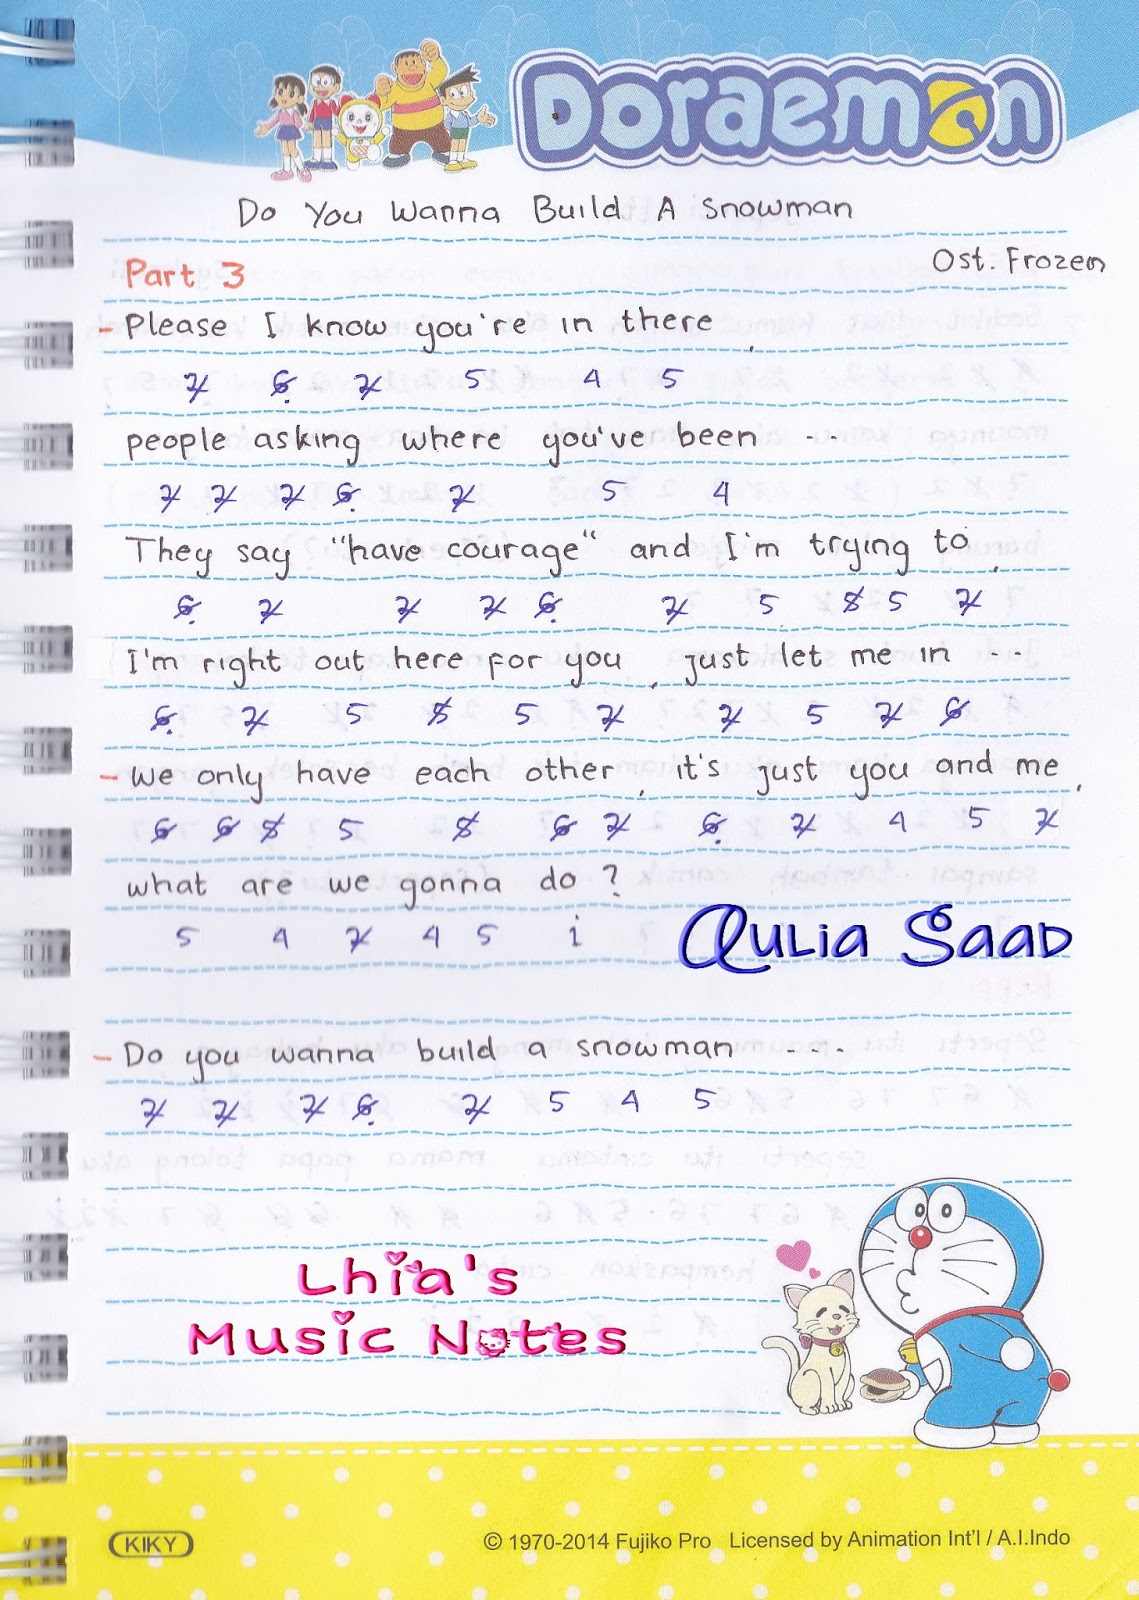 Doraemon
Do You Wanna Build A Snowman
Ost. Frozen
Part 3
- Please I know you're in there,
2 6 2 5 4 5
people asking where you've been ...
2 2 2 6 2 5 4
They say "have courage" and I'm trying to,
6 2 2 2 6 2 5 5 5 2
I'm right out here for you, just let me in ...
6 2 5 5 5 2 2 5 2 6
- We only have each other, it's just you and me,
6 6 5 5 5 6 2 6 2 4 5 2
what are we gonna do ?
5 4 2 4 5 i
Aulia Saad
- Do you wanna build a snowman ...
2 2 2 6 2 5 4 5
Lhia's
Music Notes
KIKY
© 1970-2014 Fujiko Pro Licensed by Animation Int'l / A.I.Indo